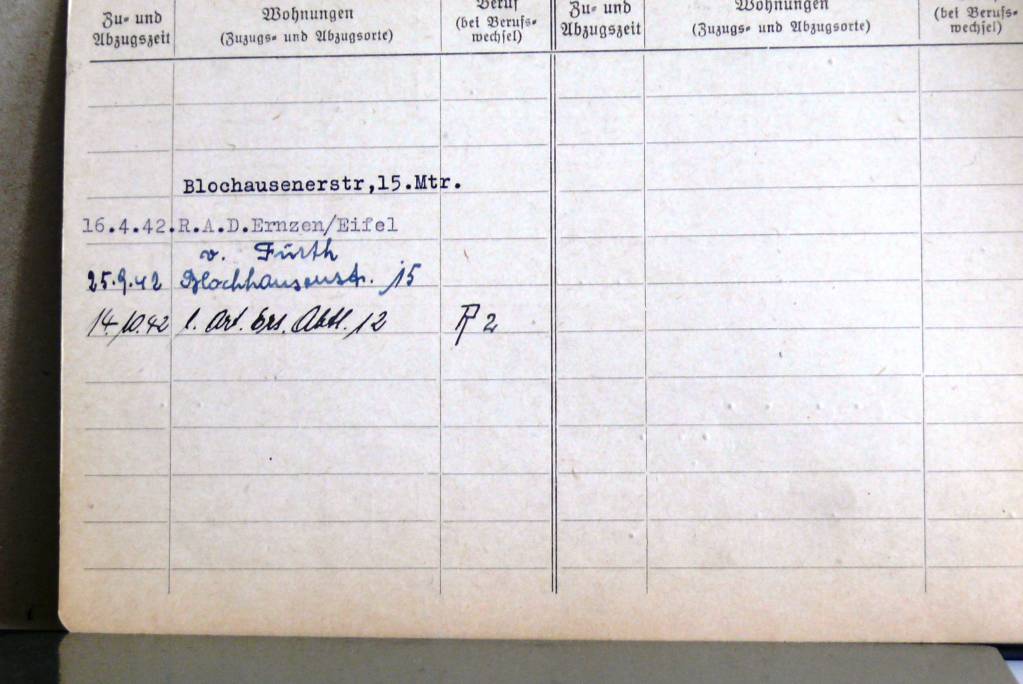 Zu- und Abzugszeit
Wohnungen
(Zuzugs- und Abzugsorte)
Beruf
(bei Berufs-
wechsel)
Zu- und
Abzugszeit
Wohnungen
(Zuzugs- und Abzugsorte)
(bei Berufs-
wechsel)
Blochausenerstr,15.Mtr.
16.4.42.R.A.D.Ernzen/Eifel
v. Fürth
25.9.42 Blochhausenstr. 15
14.10.42 l. Art. Ers. Abtl. 12
2